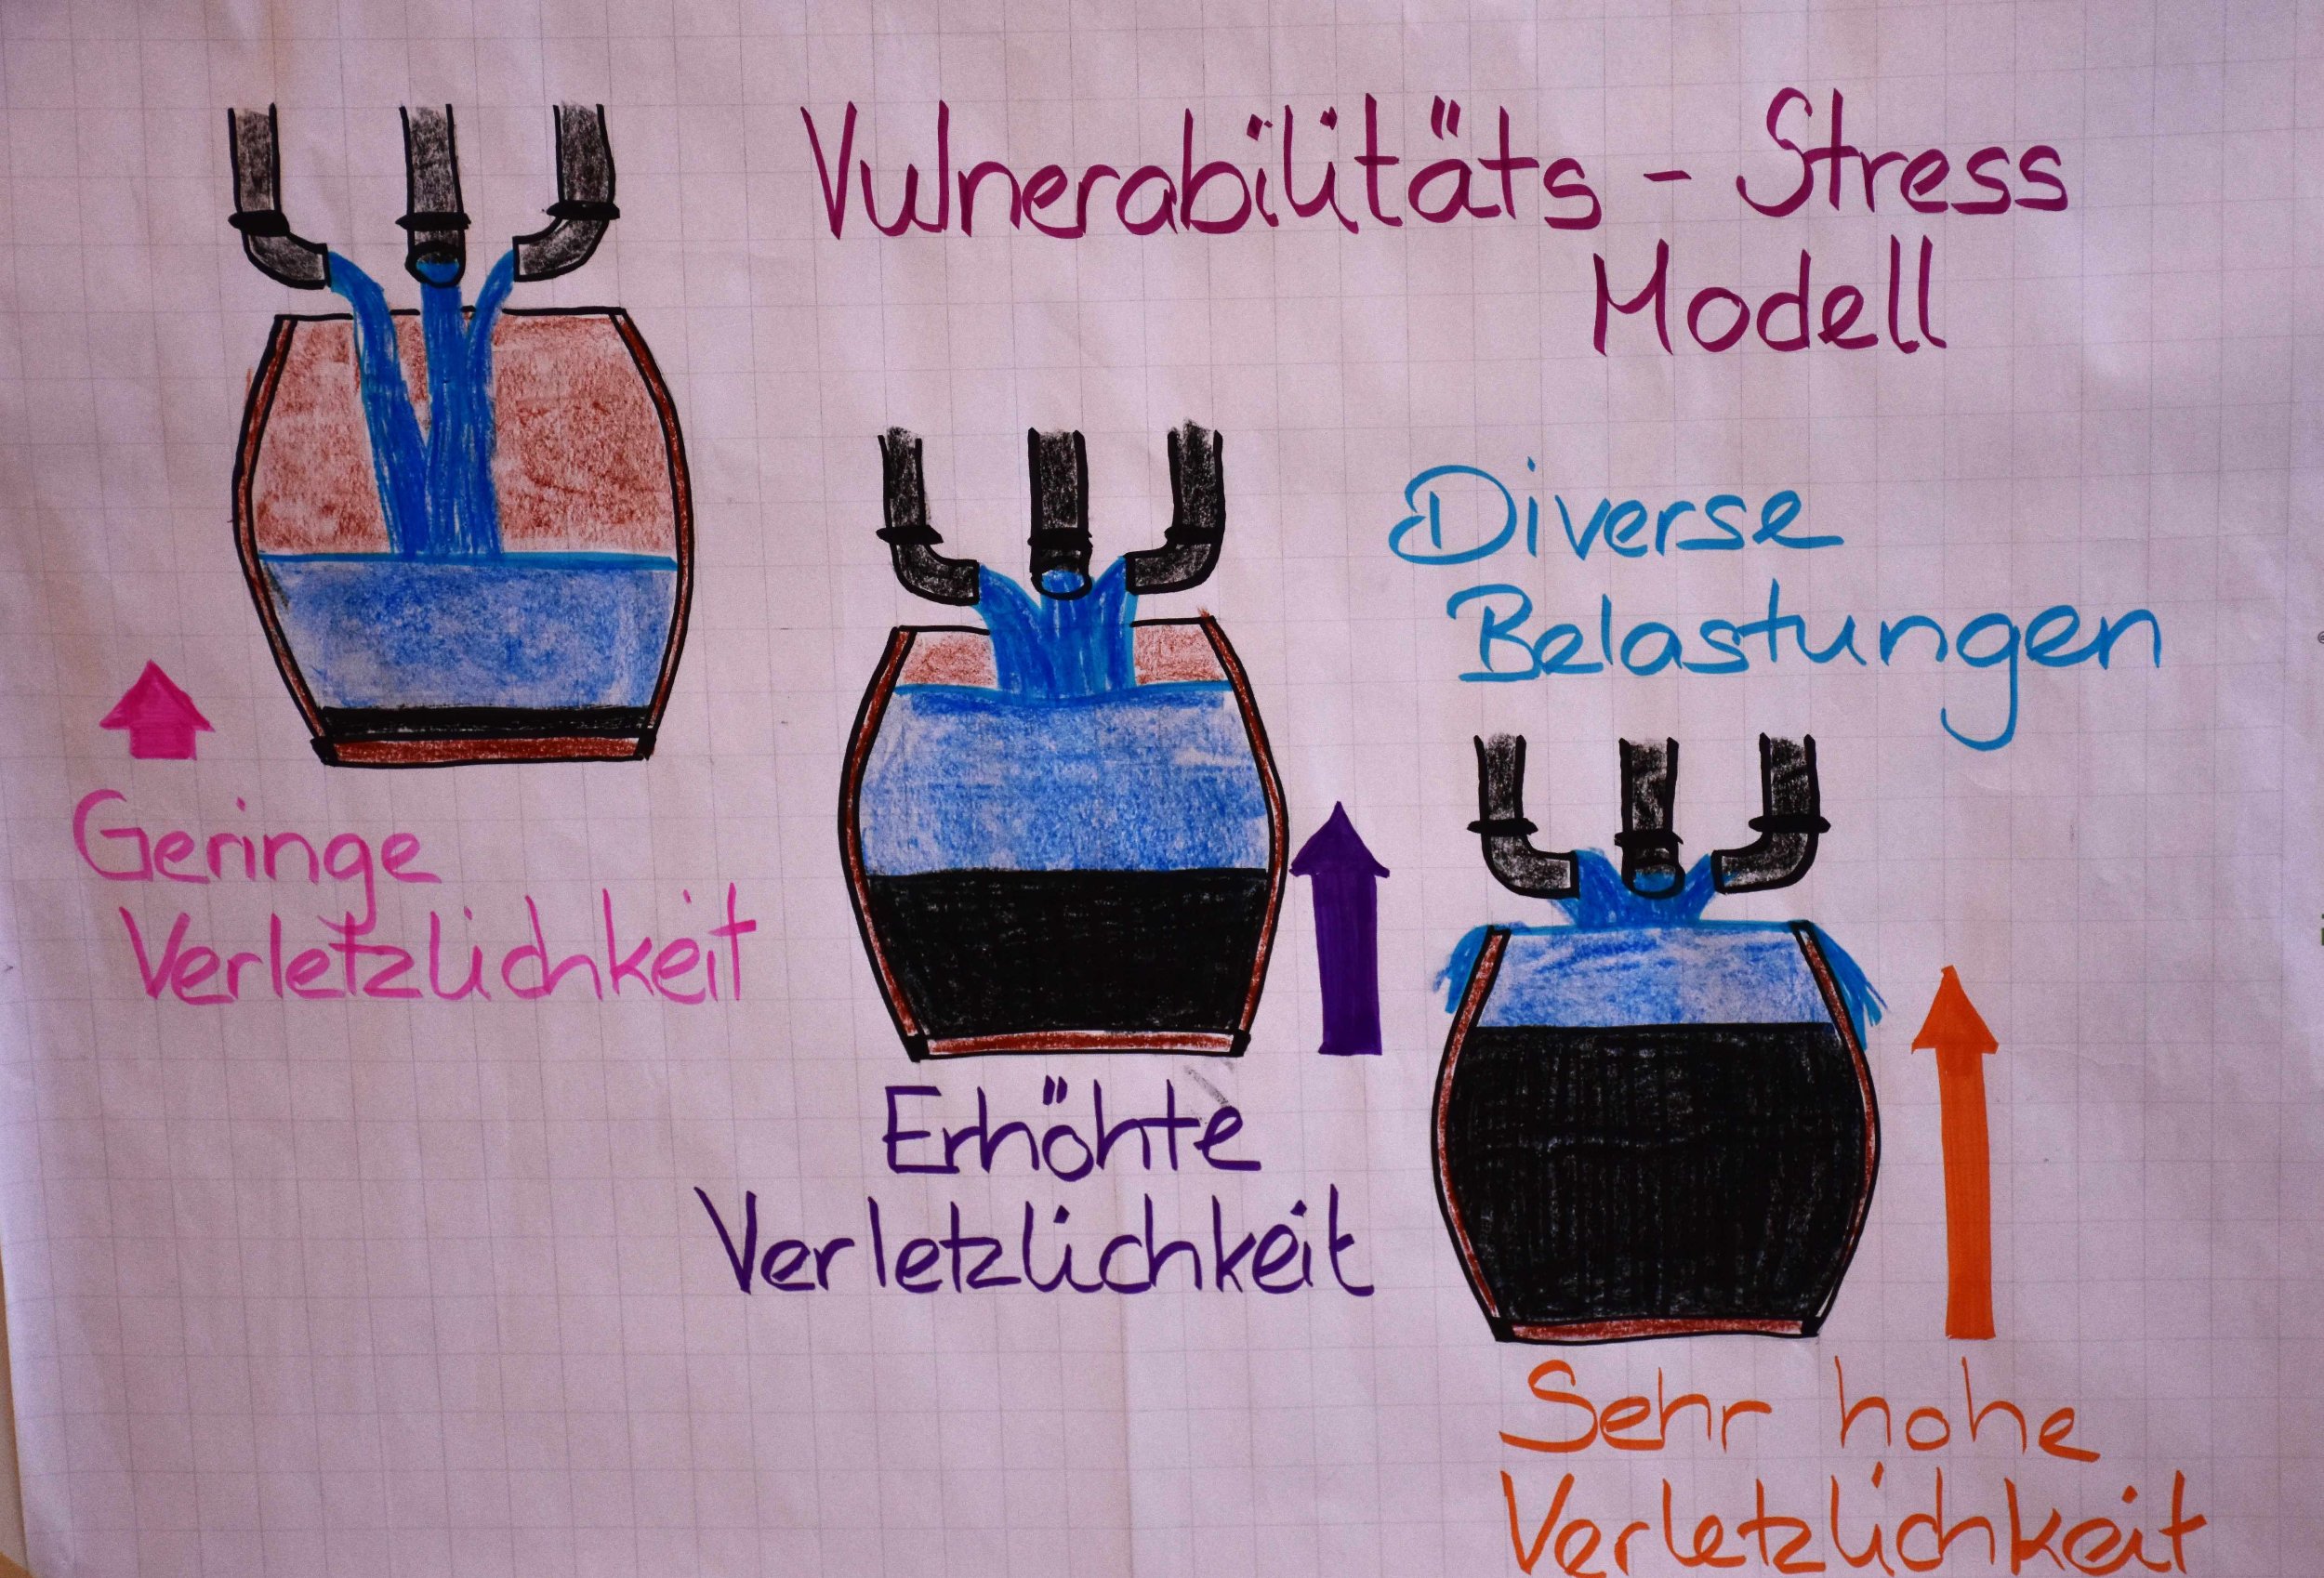 Vulnerabilitäts - Stress
Modell
Diverse
Belastungen
Geringe
Verletzlichkeit
Erhöhte
Verletzlichkeit
Sehr hohe
Verletzlichkeit